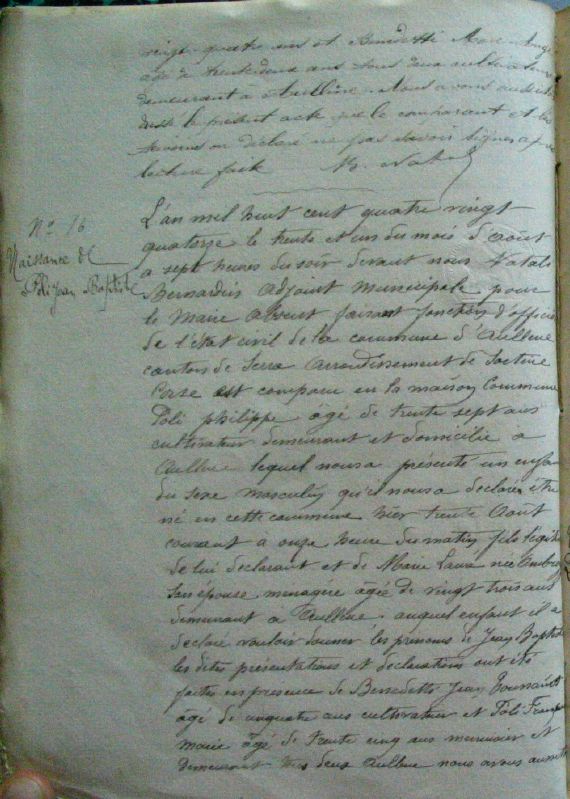 vingt quatre ans et Benedetti Marc Ange
âgé de trente deux ans tous deux cultivateurs
demeurant à Aullène. Nous avons aussitôt
dressé le présent acte que le comparant et les
témoins on déclaré ne pas savoir signer après
lecture faite B. Natal
N° 16
Naissance de
Poli Jean Baptiste
L'an mil huit cent quatre vingt
quatorze le trente et un du mois d'Août
a sept heures du soir devant nous Natali
Bernardin Adjoint Municipale pour
le Maire absent faisant fonction d'officier
de l'état civil de la commune d'Aullene
canton de Serra Arrondissement de Sartene
Corse est comparu en la maison Commune
Poli philippe âgé de trente sept ans
cultivateur demeurant et domicilié à
Aullene lequel nous a présenté un enfant
du sexe masculin qu'il nous a déclaré être
né en cette commune hier trente Août
courant a onze heure du matin fils légitime
de lui declarant et de Marie Laura née
son épouse menagère âgée de vingt trois ans
demeurant à Aullene. auquel enfant il a
declaré vouloir donner les prénoms de Jean Baptiste
les dites présentations et déclarations ont été
faites en presence de Benedetti Jean Toussaint
âgé de cultivateur et Poli François
marie âgé de trente cinq ans menuisier et
demeurant tous deux Aullene nous avons aussitôt